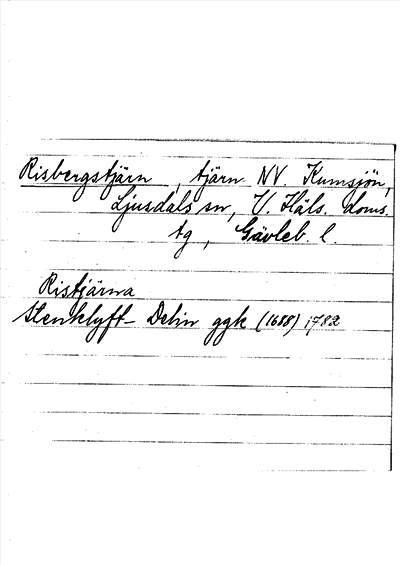 Risbergstjärn, tjärn NV. Kumsjön,
Ljusdals sn, V. Häls. doms.
tg, Gävleb. l.
Ristjärna
Stenklyft- Delin ggk (1688) 1782